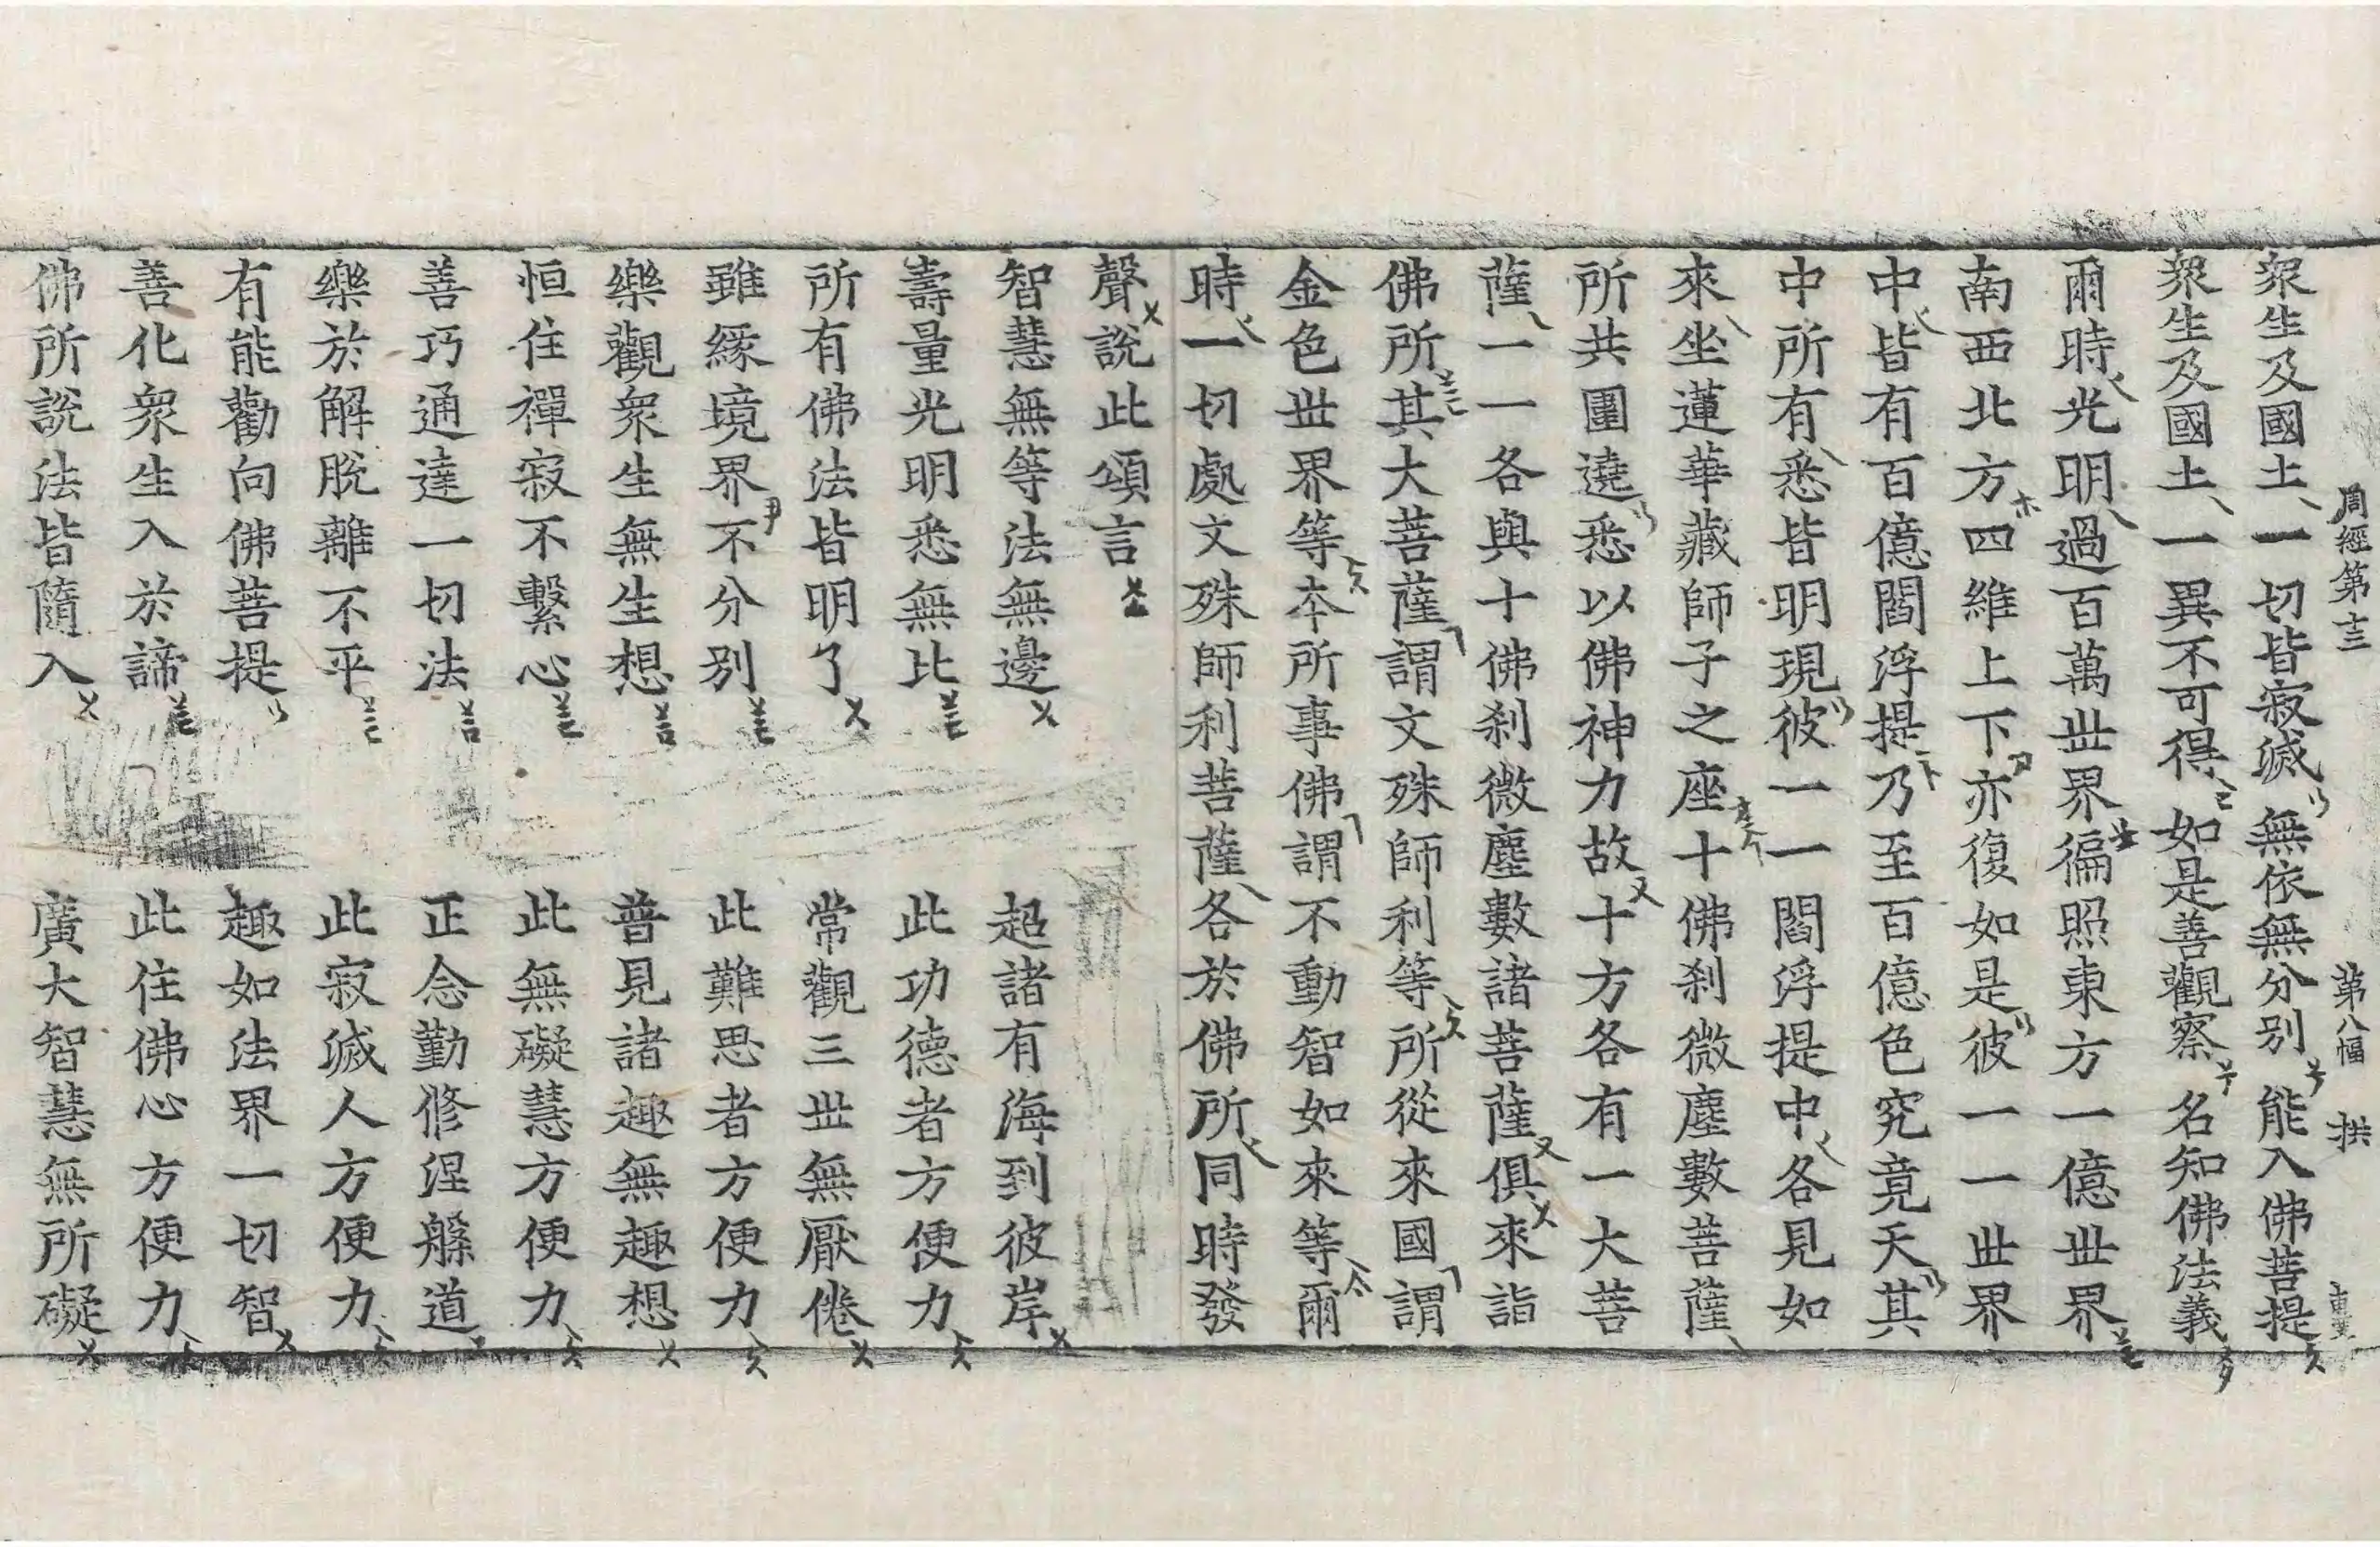 周經第十三 第八幅 拱
眾生及國土 一切皆寂滅 無依無分別 能入佛菩提
眾生及國土 一異不可得 如是善觀察 名知佛法義
爾時光明過百萬世界徧照東方一億世界
南西北方四維上下亦復如是彼一一世界
中皆有百億閻浮提乃至百億色究竟天其
中所有悉皆明現彼一一閻浮提中各見如
來坐蓮華藏師子之座十佛刹微塵數菩薩
所共圍遶悉以佛神力故十方各有一大菩
薩一一各與十佛刹微塵數諸菩薩俱來詣
佛所其大菩薩謂文殊師利等所從來國謂
金色世界等本所事佛謂不動智如來等爾
時一切處文殊師利菩薩各於佛所同時發
聲說此頌言
智慧無等法無邊 超諸有海到彼岸
壽量光明悉無比 此功德者方便力
所有佛法皆明了 常觀三世無厭倦
雖緣境界不分別 此難思者方便力
樂觀眾生無生想 普見諸趣無趣想
恒住禪寂不繫心 此無礙慧方便力
善巧通達一切法 正念勤修涅槃道
樂於解脫離不平 此寂滅人方便力
有能勸向佛菩提 趣如法界一切智
善化眾生入於諦 此住佛心方便力
佛所說法皆隨入 廣大智慧無所礙